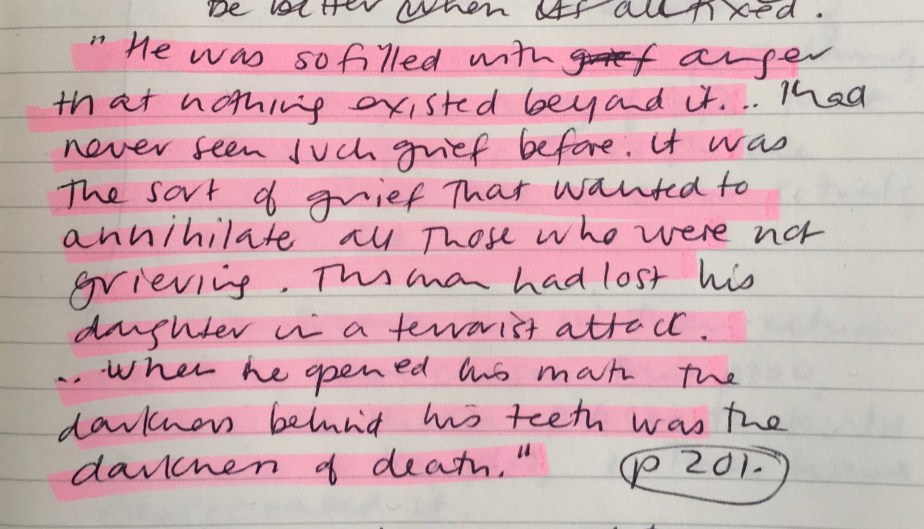 be better when its all fixed.
"He was so filled with grief anger
that nothing existed beyond it... I had
never seen such grief before. it was
the sort of grief that wanted to
annihilate all those who were not
grieving. This man had lost his
daughter in a terrorist attack.
.. When he opened his mouth the
darkness behind his teeth was the
darkness of death."
p 201.